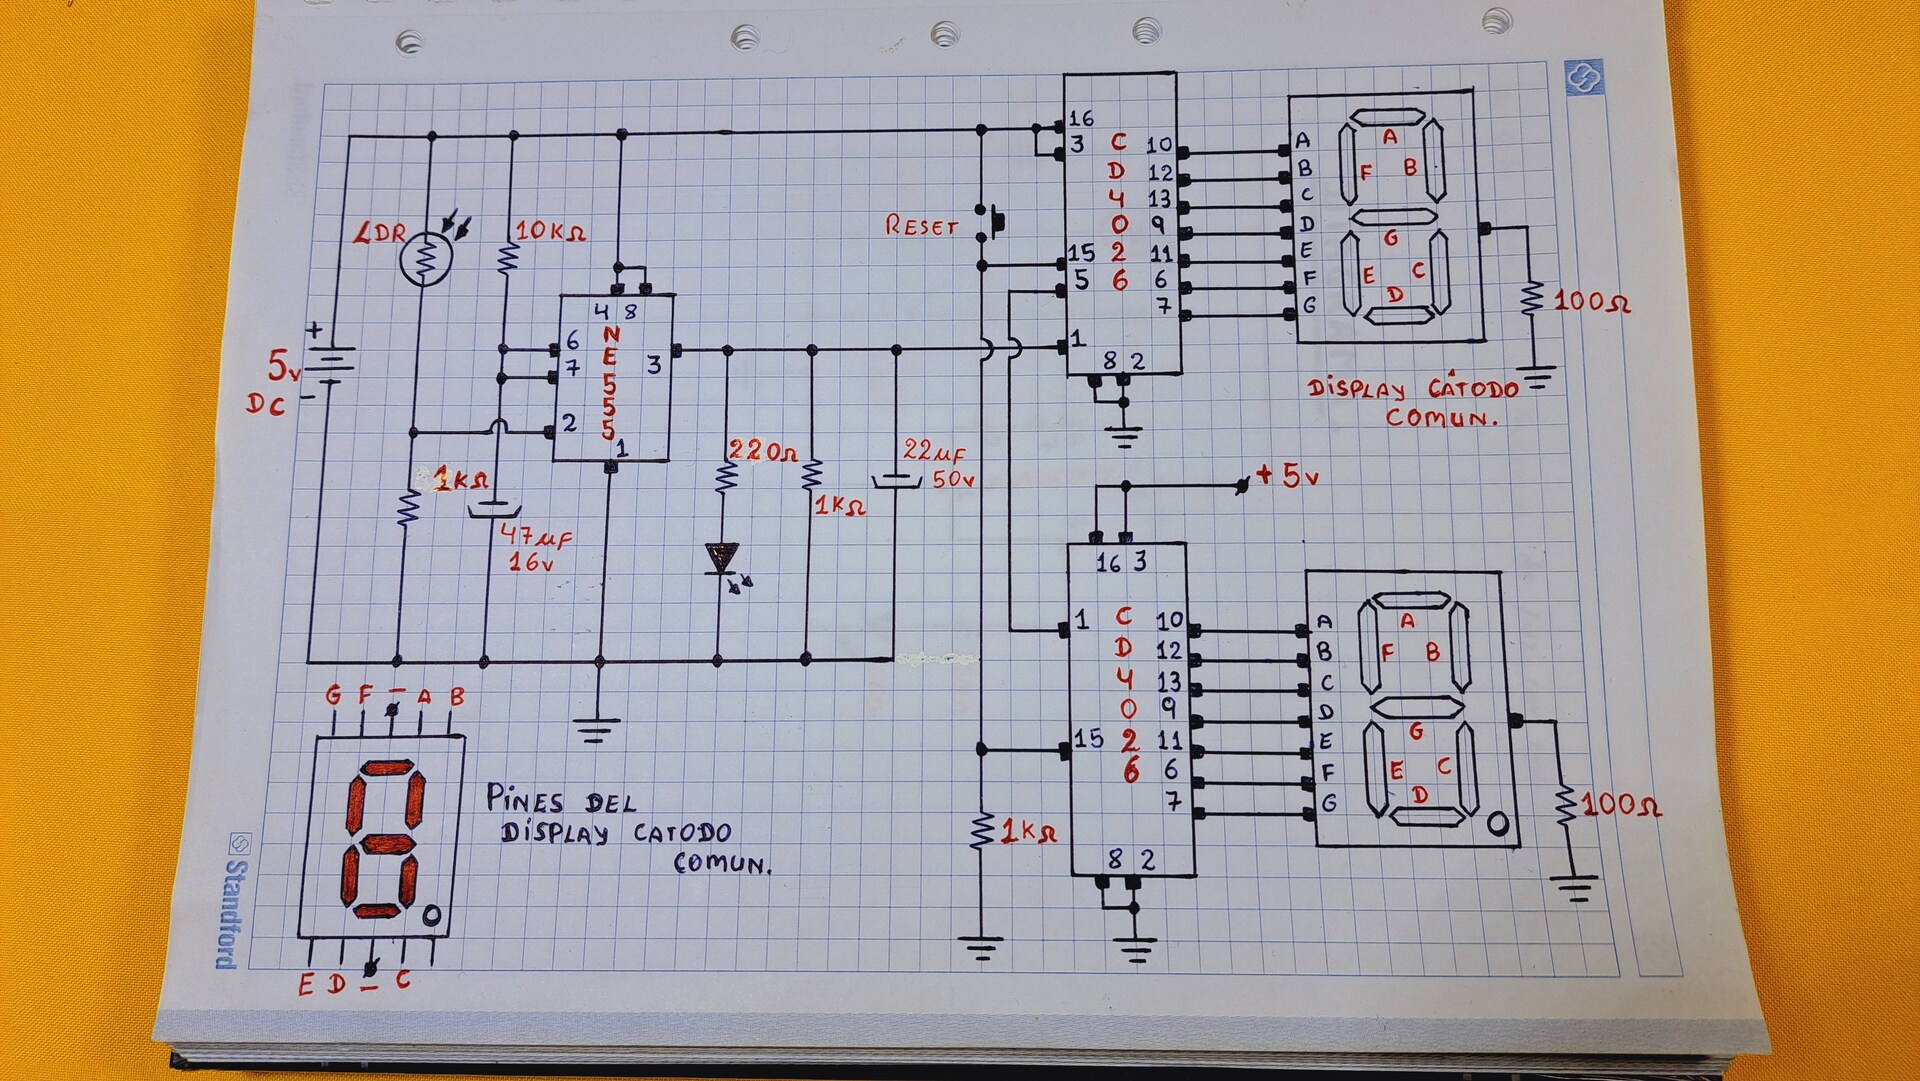 LDR
10KΩ
+
5v
DC
-
1KΩ
47µF
16v
4 8
6
7
2
NE555
3
1
220Ω
1KΩ
22µF
50v
RESET
16
3
15
5
1
CD4026
10
12
13
9
11
6
7
8 2
A
B
C
D
E
F
G
A
F B
G
E C
D
100Ω
DISPLAY CÁTODO
COMUN.
+5v
16 3
1
15
CD4026
10
12
13
9
11
6
7
8 2
A
B
C
D
E
F
G
A
F B
G
E C
D
100Ω
1KΩ
G F - A B
E D - C
PINES DEL
DISPLAY CATODO
COMUN.
Standford